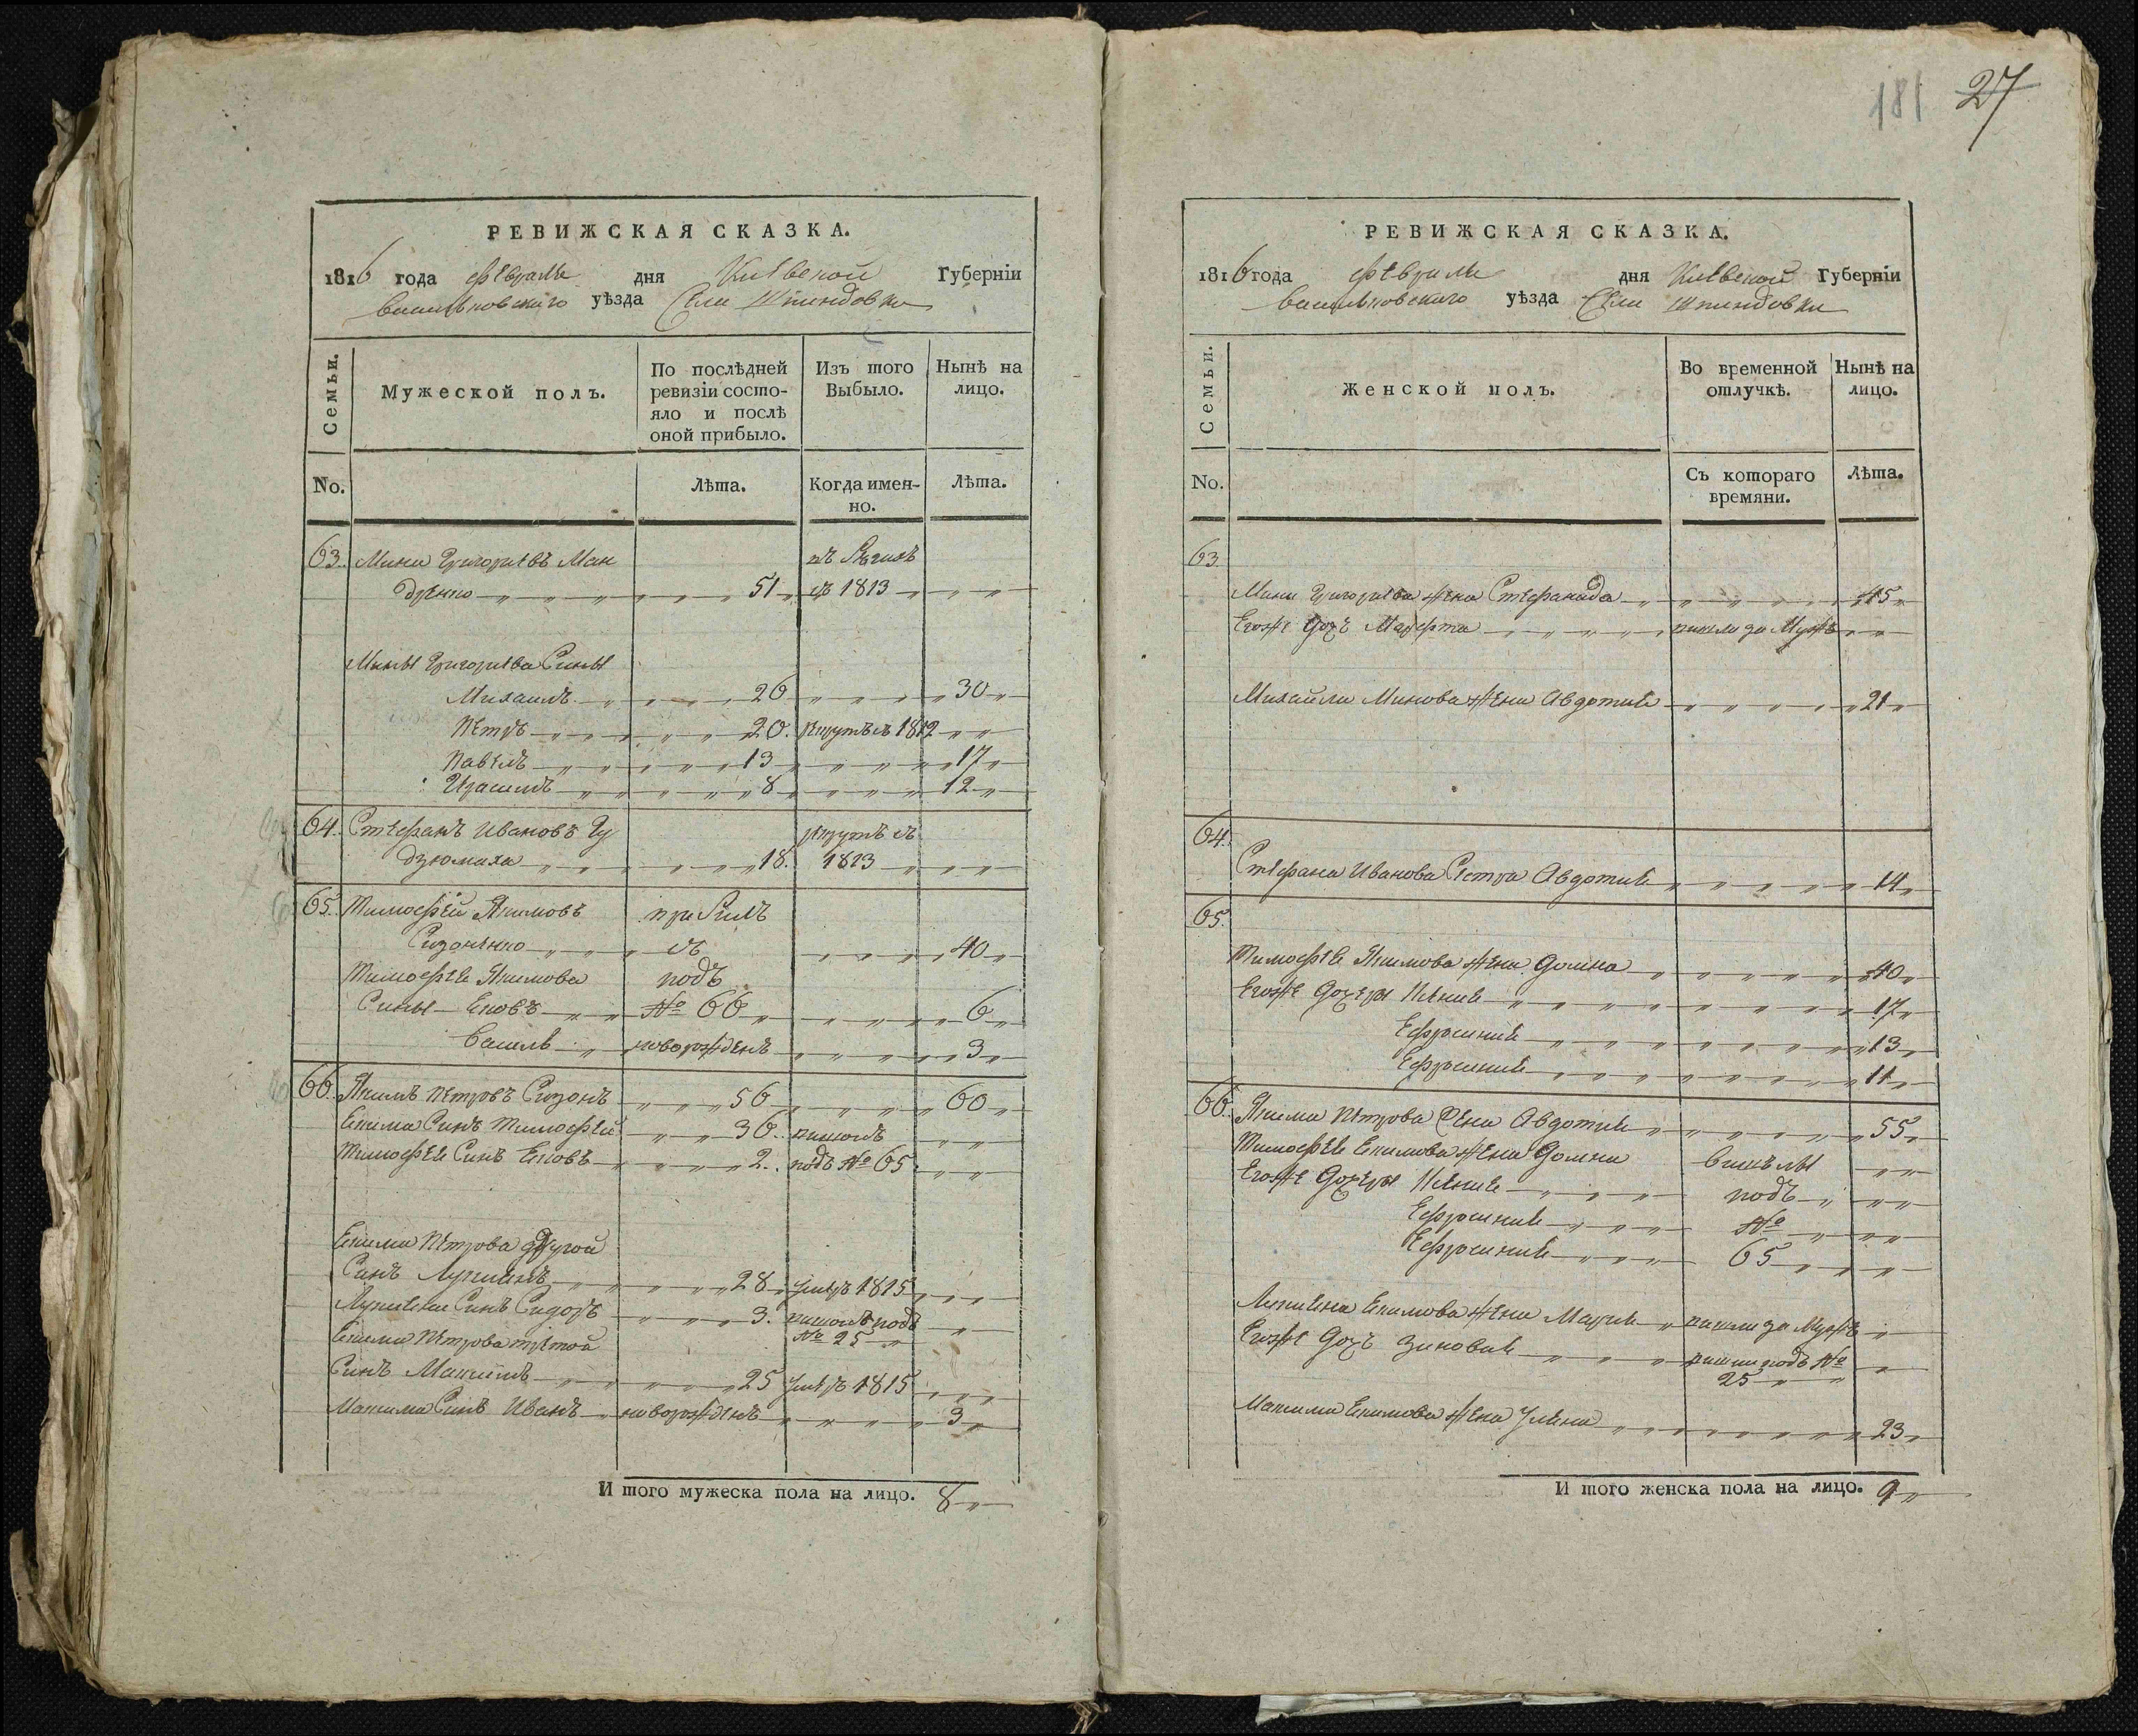 РЕВИЖСКАЯ СКАЗКА.
1816 года февраля дня Киевской Губерніи
Васильковского уѣзда Села Шпиндовки
Семьи.
Мужеской полъ.
По послѣдней ревизіи состо-
яло и послѣ
оной прибыло.
Изъ того
Выбыло.
Нынѣ на
лицо.
No.
Лѣта.
Когда имен-
но.
Лѣта.
63. Мини Григориевъ Ман
дренко 51 1813
Мины Григориева Сины
Михаилъ 26 30
Петръ 20. 1812
Павелъ 13 17
Герасимъ 8 12
64. Стефанъ Ивановъ Гу
дзюмаха 18. 1813
65. Тимофей Якимовъ
Сизоненко 40
Тимофея Якимова подъ
Сины Яковъ № 66 6
Василь новорожденъ 3
66. Якимъ Петровъ Сизонъ 56 60
Екима Синъ Тимофей 36. пишолъ
Тимофея Синъ Яковъ 2. подъ № 65
Екима Петрова другой
Синъ Лукианъ 28 умеръ 1815
Лукияна Синъ Сидоръ 3. пишолъ подъ
№ 25
Екима Петрова третой
Синъ Максимъ 25 умеръ 1815
Максима Синъ Иванъ новорожденъ 3
И того мужеска пола на лицо. 8
181 27
РЕВИЖСКАЯ СКАЗКА.
1816 года февраля дня Киевской Губерніи
Васильковского уѣзда Села Шпиндовки
Семьи.
Женской полъ.
Во временной
отлучкѣ.
Нынѣ на
лицо.
No.
Съ котораго
времяни.
Лѣта.
63.
Мини Григориева жена Стефанида 45
Егоже дочь Марфта пишла за Мужъ
Михайли Минова жена Авдотия 21
64.
Стефана Иванова Сестра Авдотия 14
65.
Тимофея Якимова жена Домна 40
Егоже дочеры Ксения 17
Ефросиния 13
Ефросиния 11
66. Якима Петрова жена Авдотия 55
Тимофея Екимова жена Домна
Егоже дочеры Ксения подъ
Ефросиния №
Ефросиния 65
Лукияна Екимова жена Мария пишла за Мужъ
Егоже дочь Зиновия пишла подъ №
25
Максима Екимова жена Уляна 23
И того женска пола на лицо. 9